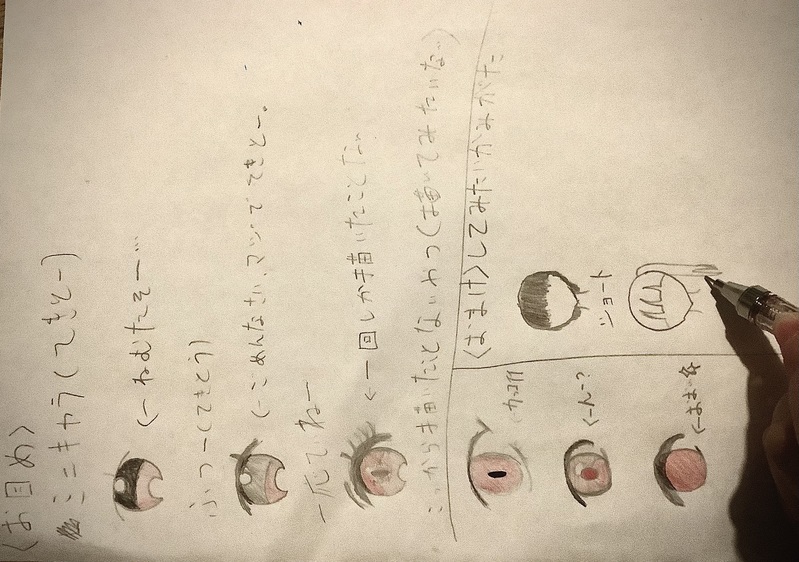 <お目め>
ミニキャラ(てきとー)
(←ねむたそー…
ふつー(てきとう)
(←ごめんなさい、マジでてきとー。
一応ていねー
<一回しか描いたことない
こっから描いたことないわつ(描いてみたいな)
<おまけ>してみたいかみがた
ショート
<んー?